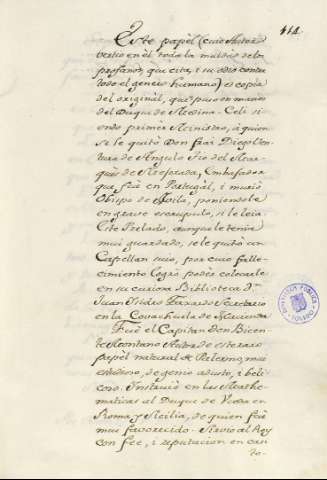 414
Este papèl (cuio Autor
vertio en èl toda la malicia de los
profanos, que cita, i su odio contra
todo el genero humano) es copia
del originàl, que puso en manos
del Duque de Medina-Celi si-
endo primer Ministro, à quien
se le quitò Don frai Diego Ven-
tura de Angulo tio del Mar-
quès de Embaxador
que fuè en Portugàl, i muriò
Obispo de Avila, poniendole
en grave escrupulo, si le leìa.
Este Prelado, aunque le tenia
mui guardado, se le quitò un
Capellan suio, por cuio falle-
cimiento logrò poder colocarle
en su curiosa Biblioteca Dn.
Juan Isidro Faxardo Secretario
en la Covachuela de Hacienda.
Fuè el Capitan don Vicen-
te Montano Autor de este raro
papèl natural de Palermo, mui
estudioso, de genio adusto, i beli-
coso. Instruiò en las Mathe-
maticas al Duque de Uceda en
Roma y Sicilia, de quien fuè
mui favorecido. Sirviò al Rey
con fee, i reputacion en casi
to-
BIBLIOTECA PUBLICA
TOLEDO